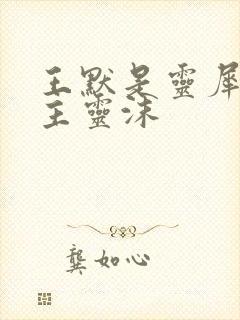 王默是靈犀
主靈沫
龔如心